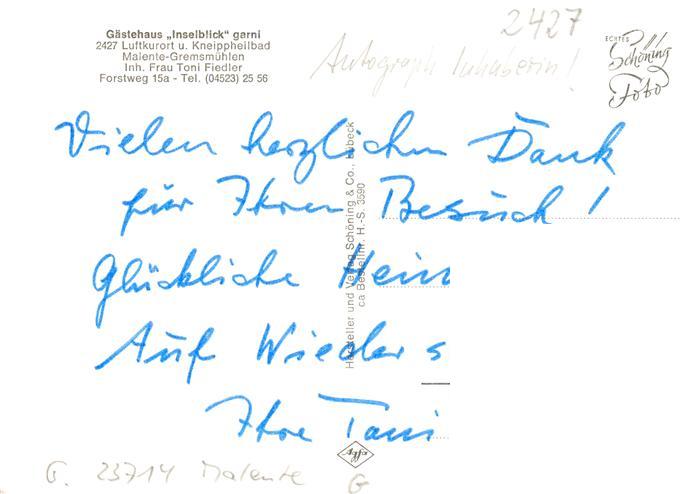 Gästehaus „Inselblick“ garni
2427 Luftkurort u. Kneippheilbad
Malente-Gremsmühlen
Inh. Frau Toni Fiedler
Forstweg 15a - Tel. (04523) 25 56
2427
Autograph Inhaberin!
ECHTES
Schöning
Foto
Vielen herzlichen Dank
für Ihren Besuch!
Glückliche Heim
Auf Wieders
Ihre Toni
Hersteller und Verlag Schöning & Co., Lübeck
ca Bestellnr. H.-S. 3590
Agfa
G. 23714 Malente
G